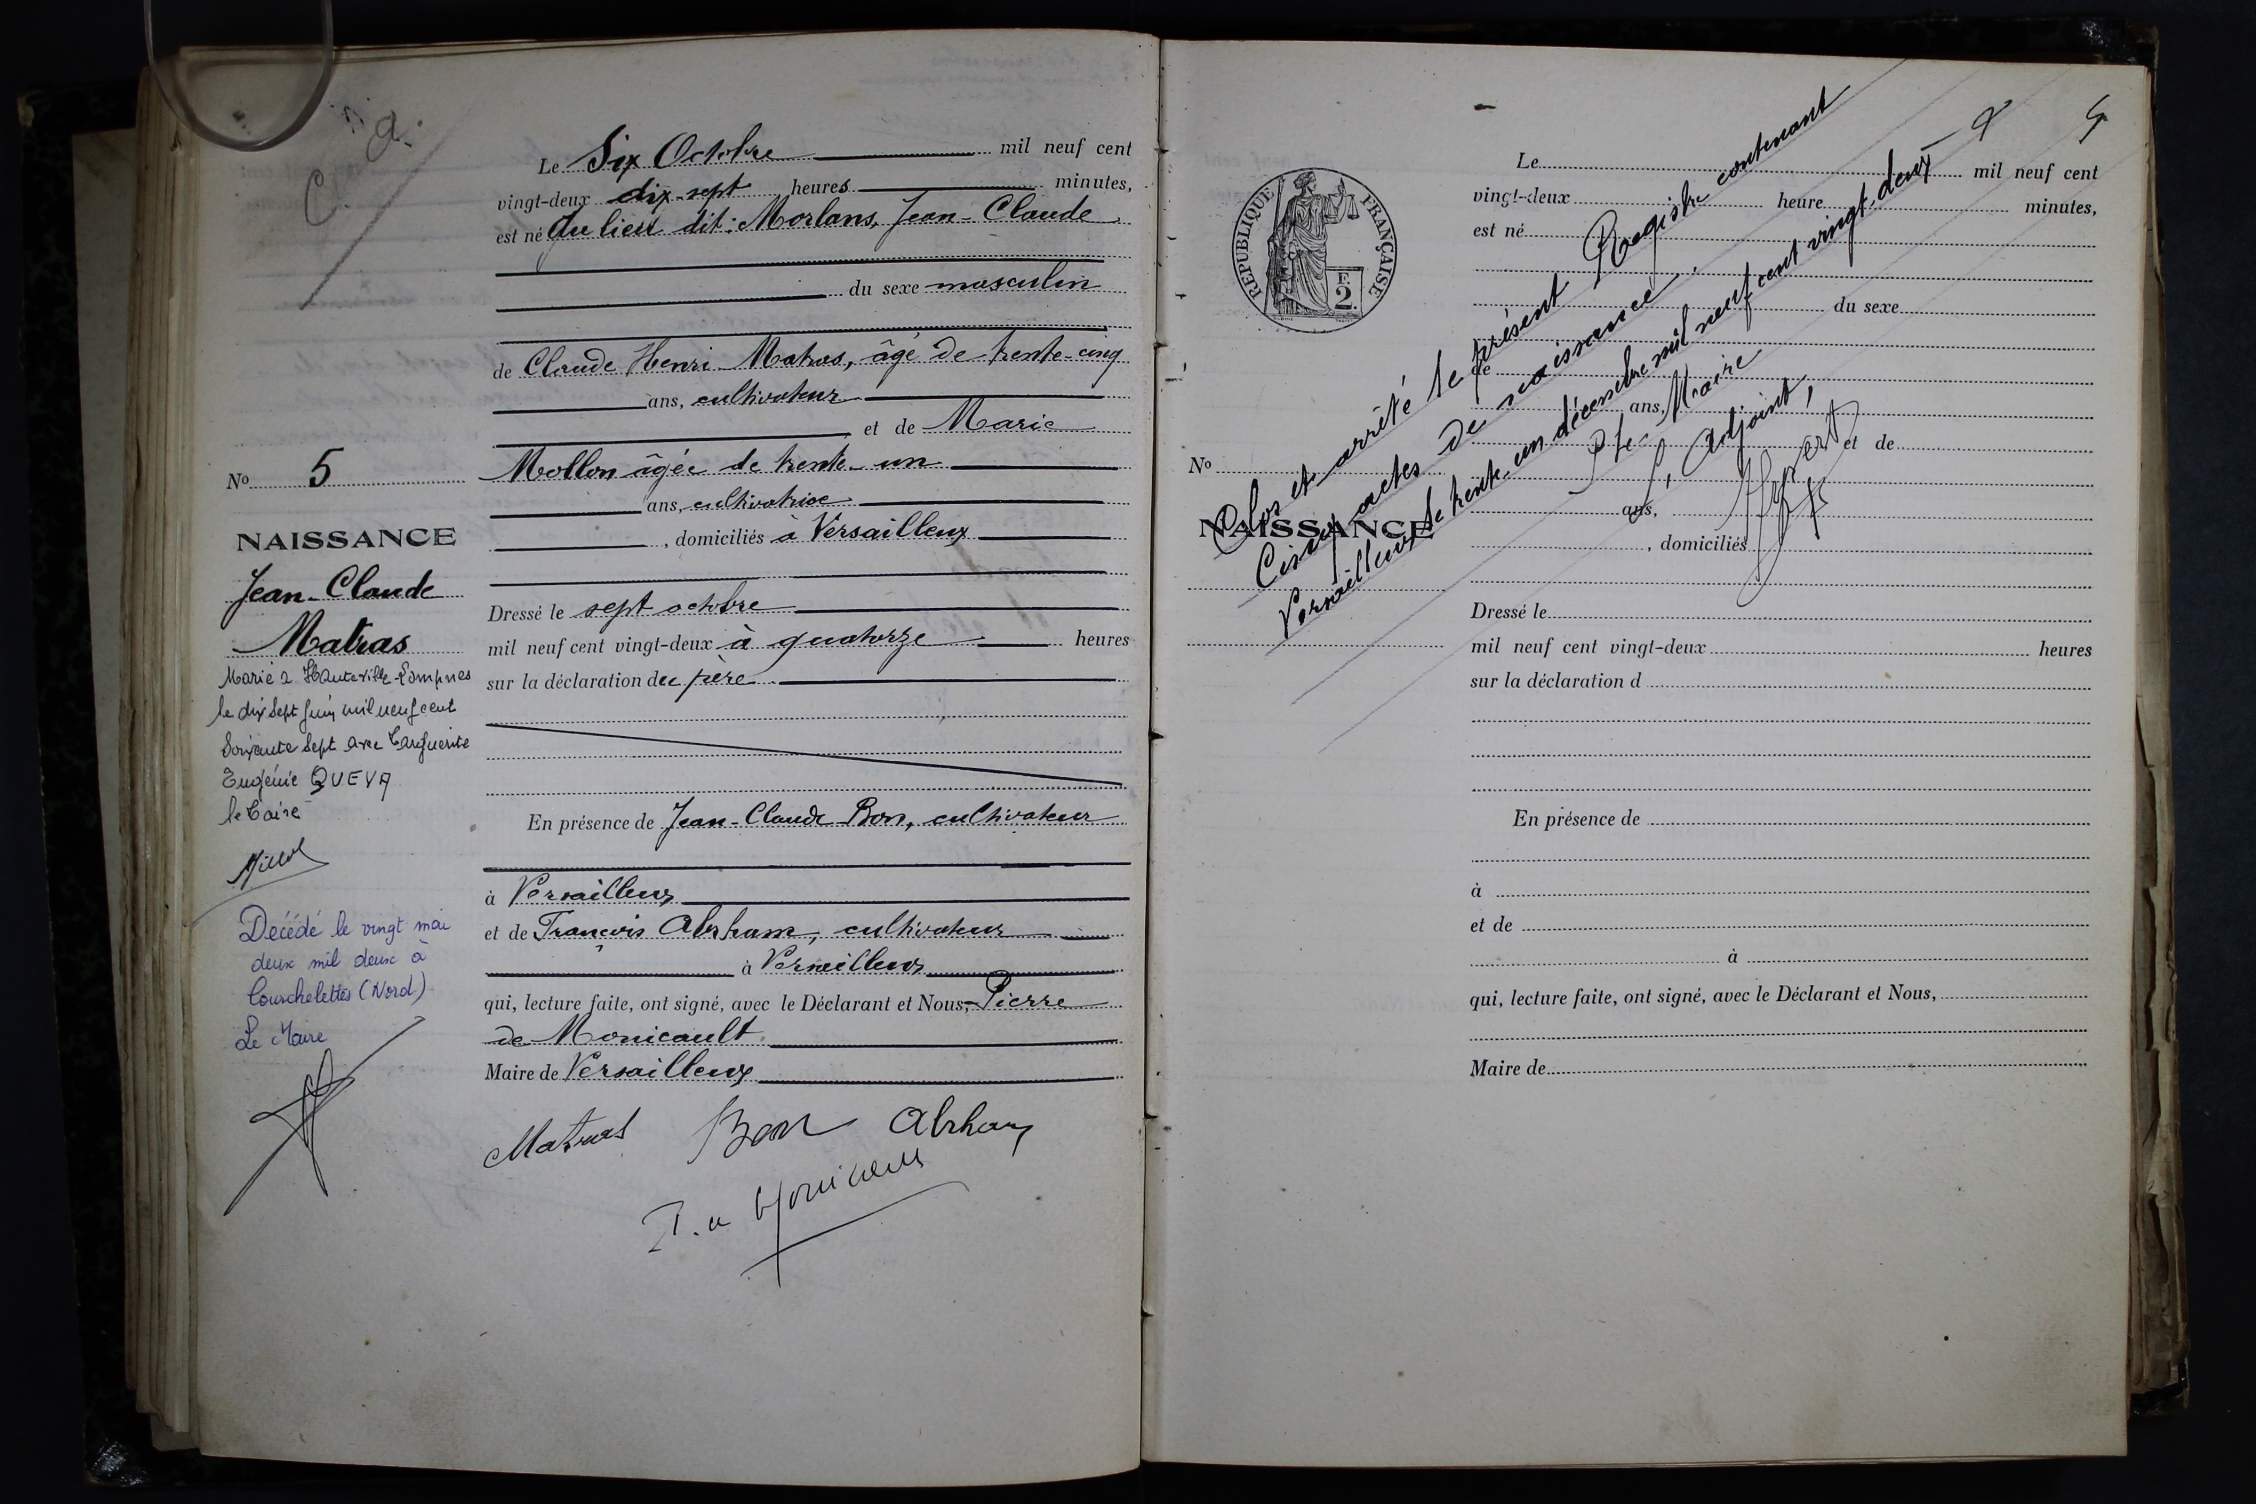 C. a.
Le Six Octobre mil neuf cent
vingt-deux dix-sept heures minutes,
est né au lieu dit: Morlans, Jean-Claude
du sexe masculin
de Claude Henri Matras, âgé de trente-cinq
ans, cultivateur
et de Marie
Mollon âgée de trente-un
ans, cultivatrice
, domiciliés à Versailleux
Dressé le sept octobre
mil neuf cent vingt-deux à quatorze heures
sur la déclaration du père
En présence de Jean-Claude Bon, cultivateur
à Versailleux
et de François Abrham, cultivateur
à Versailleux
qui, lecture faite, ont signé, avec le Déclarant et Nous, Pierre
de Monicault
Maire de Versailleux
Matras Bon Abrham
P. de Monicault
No 5
NAISSANCE
Jean-Claude
Matras
Marié à Hauteville-Lompnes
le dix sept juin mil neuf cent
soixante sept avec Marguerite
Eugénie QUEVA
le Maire
Décédé le vingt mai
deux mil deux à
Courchelettes (Nord)
Le Maire
5
RÉPUBLIQUE FRANÇAISE
F.
2
No
NAISSANCE
Le mil neuf cent
vingt-deux heure minutes,
est né
du sexe
de
ans,
et de
ans,
, domiciliés
Dressé le
mil neuf cent vingt-deux heures
sur la déclaration d
En présence de
à
et de
à
qui, lecture faite, ont signé, avec le Déclarant et Nous,
Maire de
Clos et arrêté le présent Registre contenant
Cinq actes de naissance.
Versailleux, le trente-un décembre mil neuf cent vingt-deux
Maire
L'Adjoint,